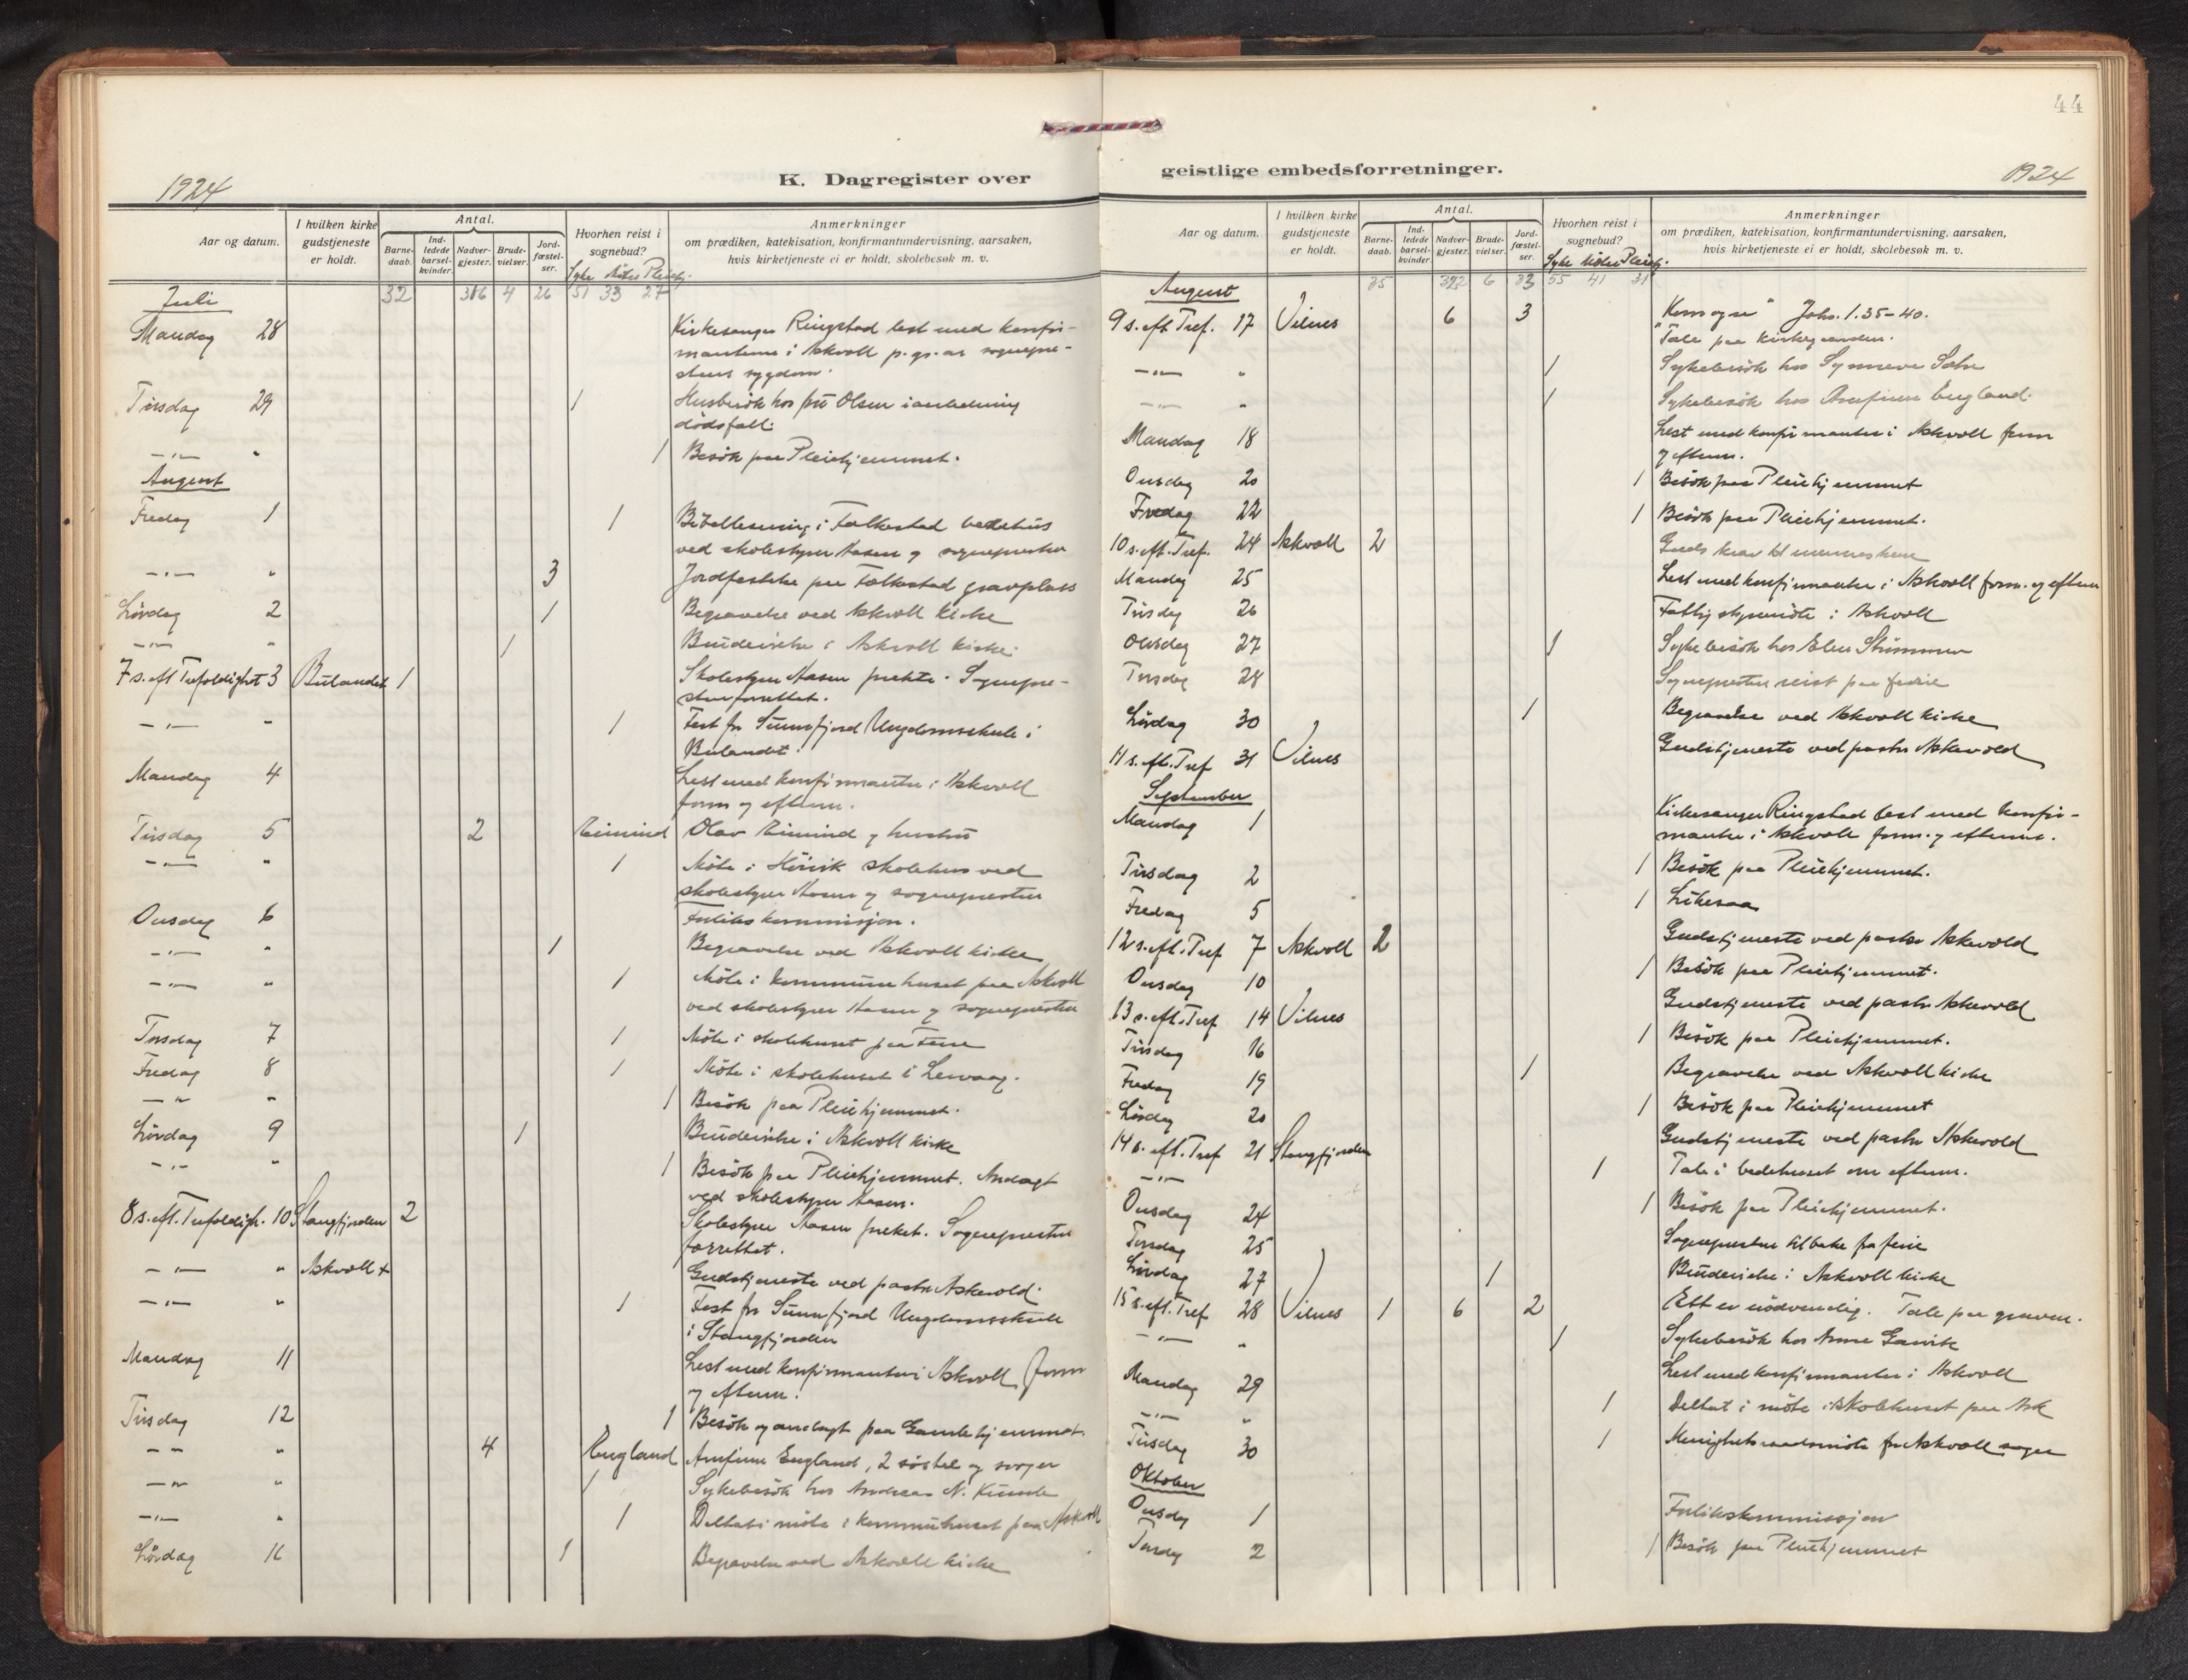 44
1924
K. Dagregister over
Aar og datum.
I hvilken kirke gudstjeneste er holdt.
Antal.
Barne-daab.
Ind-ledede barsel-kvinder.
Nadver-gjester.
Brude-vielser.
Jord-fæstel-ser.
Hvorhen reist i sognebud?
Syke Möter Pleiehj.
Anmerkninger
om prædiken, katekisation, konfirmantundervisning, aarsaken,
hvis kirketjeneste ei er holdt, skolebesøk m. v.
32 386 4 26 51 33 27
Juli
Mandag 28 Kirkesanger Ringstad lest med konfir-
mantene i Askvoll p. gr. av sognepre-
stens sygdom.
Tirsdag 29 1 Husbesök hos Olsen i anledning
dödsfall.
-"- " 1 Besök paa Pleiehjemmet.
August
Fredag 1 1 Bibellesning i Folkestad bedehus
ved skolestyrer Aasen og sognepresten
-"- " 3 Jordfestelse paa Folkestad gravplass
Lördag 2 1 Begravelse ved Askvoll kirke
-"- " 1 Brudevielse i Askvoll kirke.
7 s. eft Trefoldighet 3 Bulandet 1 Skolestyrer Aasen prekte. Sognepre-
sten forrettet.
-"- " 1 Fest for Sunnfjord Ungdomsskule i
Bulandet.
Mandag 4 Lest med konfirmanter i Askvoll
form og efterm.
Tirsdag 5 2 Rimind Olav Rimind og hustru
-"- " 1 Möte i skolehus ved
skolestyrer Aasen og sognepresten
Onsdag 6 Forlikskommisjon.
-"- " 1 Begravelse ved Askvoll kirke
-"- " 1 Möte i kommunehuset paa Askvoll
ved skolestyrer Aasen og sognepresten
Torsdag 7 1 Möte i skolehuset paa
Fredag 8 1 Möte i skolehuset i
-"- " 1 Besök paa Pleiehjemmet.
Lördag 9 1 Brudevielse i Askvoll kirke
-"- " 1 Besök paa Pleiehjemmet. Andagt
ved skolestyrer Aasen.
8 s. eft. Trefoldigh. 10 Stangfjorden 2 Skolestyrer Aasen preket. Sognepresten
forrettet.
-"- " Askvoll + Gudstjeneste ved pastor Askevold.
-"- " 1 Fest for Sunnfjord Ungdomsskule
i Stangfjorden
Mandag 11 Lest med konfirmanter i Askvoll form
og efterm.
Tirsdag 12 1 Besök og andagt paa Gamlehjemmet.
-"- " 4 England Arnfinn England, 2 söstre og svoger
-"- " 1 Sykebesök hos Andreas N.
-"- " 1 Deltat i möte i kommunehuset paa Askvoll
Lördag 16 1 Begravelse ved Askvoll kirke
geistlige embedsforretninger.
1924
Aar og datum.
I hvilken kirke gudstjeneste er holdt.
Antal.
Barne-daab.
Ind-ledede barsel-kvinder.
Nadver-gjester.
Brude-vielser.
Jord-fæstel-ser.
Hvorhen reist i sognebud?
Syke Möter Pleiehj.
Anmerkninger
om prædiken, katekisation, konfirmantundervisning, aarsaken,
hvis kirketjeneste ei er holdt, skolebesøk m. v.
35 392 6 33 55 41 31
August
9 s. eft Tref. 17 Vilnes 6 3 "Kom og se" Johs. 1. 35-40.
Tale paa kirkegaarden.
-"- " 1 Sykebesök hos Synneve
-"- " 1 Sykebesök hos Arnfinn England.
Mandag 18 Lest med konfirmanter i Askvoll form
og efterm.
Onsdag 20 1 Besök paa Pleiehjemmet
Fredag 22 1 Besök paa Pleiehjemmet.
10 s. eft. Tref. 24 Askvoll 2 Guds krav til menneskene
Mandag 25 Lest med konfirmanter i Askvoll form. og efterm
Tirsdag 26 Fattigstyremöte i Askvoll
Onsdag 27 1 Sykebesök hos Elen
Torsdag 28 Sognepresten reist paa ferie
Lördag 30 1 Begravelse ved Askvoll kirke
11 s. eft. Tref 31 Vilnes Gudstjeneste ved pastor Askevold
September
Mandag 1 Kirkesanger Ringstad lest med konfir-
manter i Askvoll form. og efterm.
Tirsdag 2 1 Besök paa Pleiehjemmet.
Fredag 5 1 Likesaa
12 s. eft. Tref 7 Askvoll 2 Gudstjeneste ved pastor Askevold
Onsdag 10 1 Besök paa Pleiehjemmet.
13 s. eft. Tref 14 Vilnes Gudstjeneste ved pastor Askevold
Tirsdag 16 1 Besök paa Pleiehjemmet.
Fredag 19 1 Begravelse ved Askvoll kirke
Lördag 20 1 Besök paa Pleiehjemmet
14 s. eft. Tref 21 Stangfjorden Gudstjeneste ved pastor Askevold
-"- 1 Tale i bedehuset om efterm.
Onsdag 24 1 Besök paa Pleiehjemmet.
Torsdag 25 Sognepresten tilbake fra ferie
Lördag 27 1 Brudevielse i Askvoll kirke
15 s. eft. Tref 28 Vilnes 1 6 2 Ett er nödvendig. Tale paa graven.
-"- " 1 Sykebesök hos Anne
Mandag 29 Lest med konfirmanter i Askvoll
-"- " 1 Deltat i möte i skolehuset paa Ask
Tirsdag 30 1 Menighetsraadsmöte for Askvoll sogn
Oktober
Onsdag 1 Forlikskommissjon
Torsdag 2 1 Besök paa Pleiehjemmet